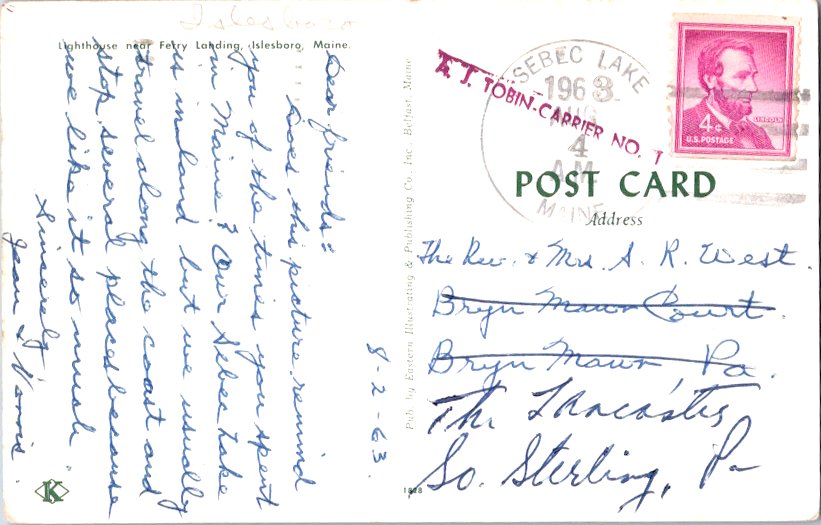 Islesboro
Lighthouse near Ferry Landing, Islesboro, Maine.
Dear friends:
Does this picture remind
you of the times you spent
in Maine? Our Sebec Lake
is inland but we usually
travel along the coast and
stop several places because
we like it so much
Sincerely
Jean L Norris
8-2-63.
K
1828
Pub. by Eastern Illustrating & Publishing Co., Inc., Belfast, Maine
SEBEC LAKE
1963
AUG
4
AM
MAINE
A. J. TOBIN-CARRIER NO. 1
4¢
LINCOLN
U.S. POSTAGE
POST CARD
Address
The Rev. & Mrs. A. R. West.
Bryn Mawr Court.
Bryn Mawr, Pa.
The Lancaster
So. Sterling, Pa